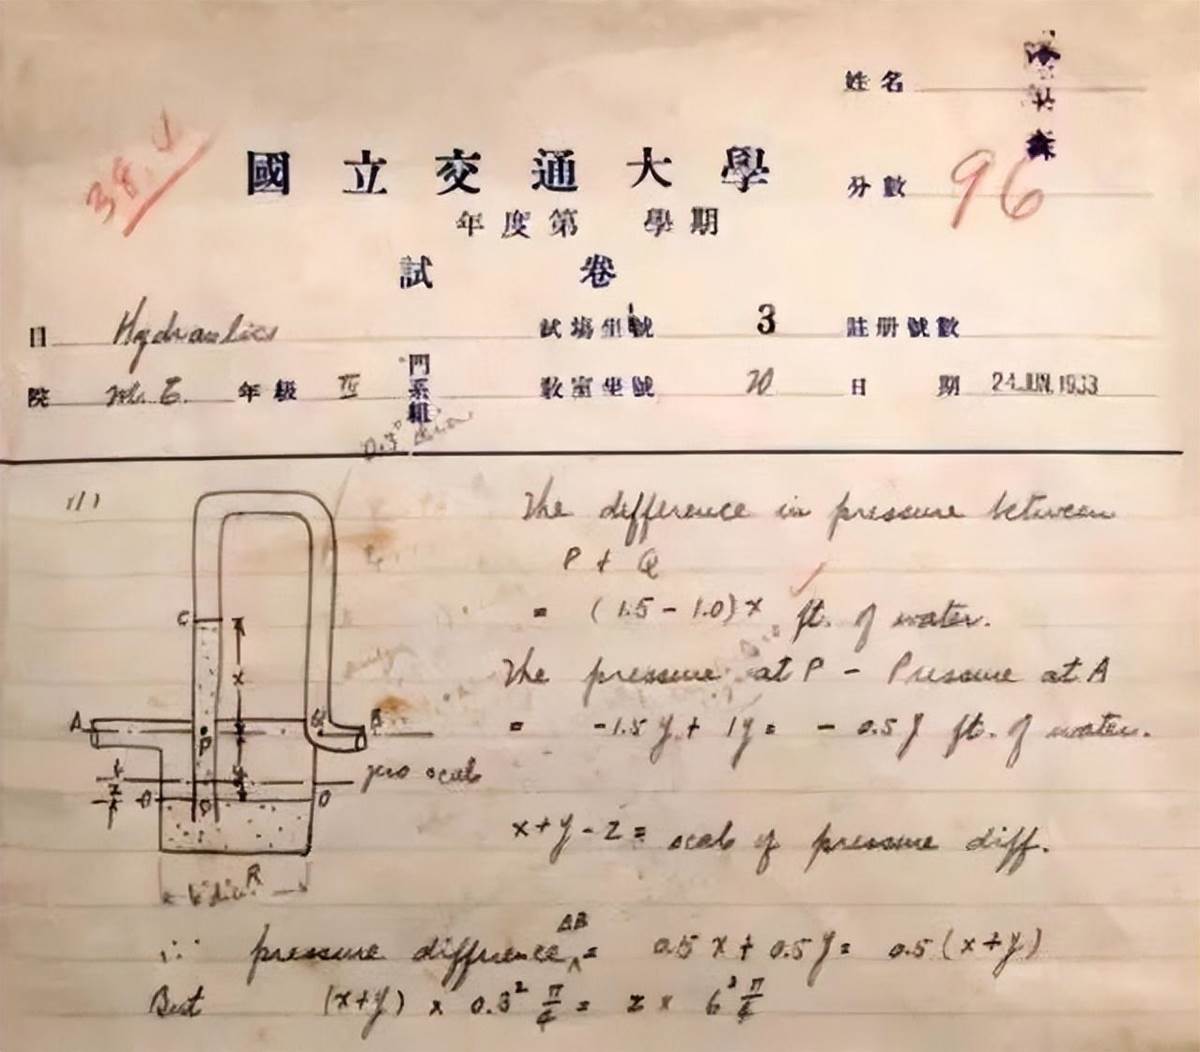 姓名
38.4
國立交通大學
分數 96
年度第 學期
試卷
目 Hydraulics 試場坐號 3 註册號數
院 M.E. 年級 IV 門系組 教室坐號 20 日期 24 JUN. 1933
0.3"
(1)
The difference in pressure between
P + Q
= (1.5 - 1.0) x ft. of water.
C
x
The pressure at P - Pressure at A
A
P
B
= -1.5 y + 1y = - 0.5 y ft. of water.
zero scale
y
z
O
O
x+y-z = scale of pressure diff.
R
6" dia.
∴ pressure difference AB = 0.5 x + 0.5 y = 0.5 (x+y)
But (x+y) x 0.3² π/4 = z x 6² π/4